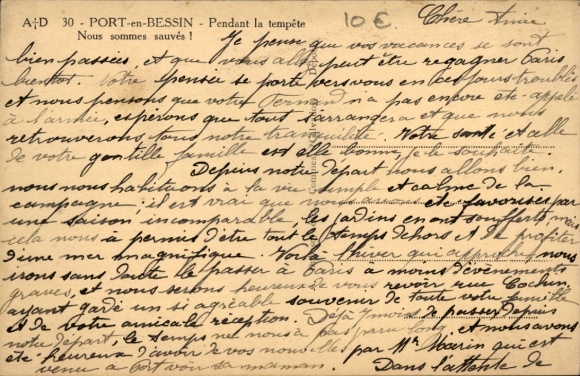 A†D 30 - PORT-en-BESSIN - Pendant la tempête
Nous sommes sauvés !
10 €
Chère Amie
Je pense que vos vacances se sont
bien passées, et que vous allez peut être regagner Paris
bientôt. Notre pensée se porte vers vous en ces jours troublés
et nous pensons que votre Fernand n'a pas encore été appelé
à l'armée, espérons que tout s'arrangera et que nous
retrouverons tous notre tranquilité. Votre santé et celle
de votre gentille famille est elle bonne, je le souhaite.
Depuis notre départ nous allons bien,
nous nous habituons à la vie simple et calme de la
campagne, il est vrai que nous avons été favorisés par
une saison incomparable, les jardins en ont souffert mais
cela nous a permis d'être tout le temps dehors et de profiter
d'une mer magnifique. Voilà l'hiver qui approche, nous
irons sans doute le passer à Paris à moins d'événements
graves, et nous serons heureux de vous revoir rue Cochin
ayant gardé un si agréable souvenir de toute votre famille
et de votre amicale réception. Déjà mois de passer depuis
notre départ, le temps ne nous a pas paru long, et nous avons
été heureux d'avoir de vos nouvelles par Mr qui est
venu à Port voir sa maman. Dans l'attente de